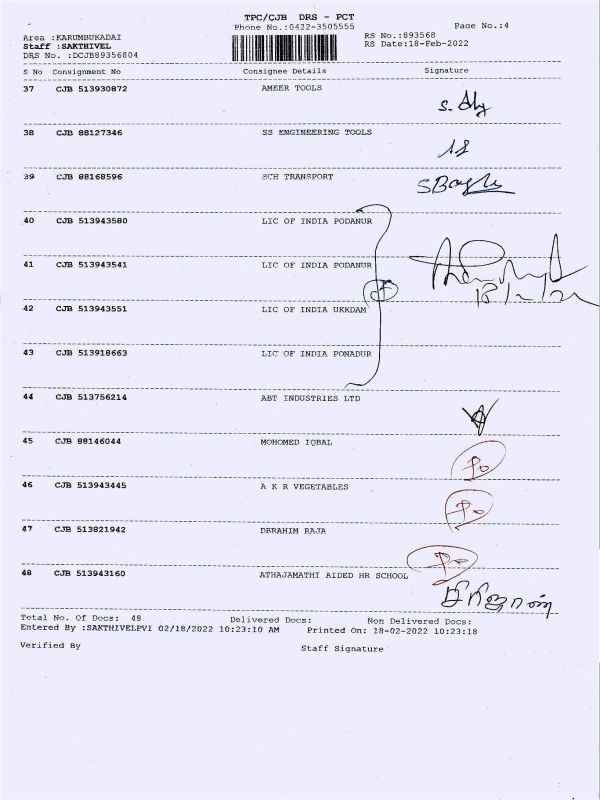 TPC/CJB DRS - PCT
Phone No.:0422-3505555 Page No.:4
Area :KARUMBUKADAI RS No.:893568
Staff :SAKTHIVEL RS Date:18-Feb-2022
DRS No. :DCJB89356804
S No Consignment No Consignee Details Signature
37 CJB 513930872 AMEER TOOLS
38 CJB 88127346 SS ENGINEERING TOOLS
39 CJB 88168596 SCH TRANSPORT
40 CJB 513943580 LIC OF INDIA PODANUR
41 CJB 513943541 LIC OF INDIA PODANUR
18/2/22
42 CJB 513943551 LIC OF INDIA UKKDAM
43 CJB 513918663 LIC OF INDIA PONADUR
44 CJB 513756214 ABT INDUSTRIES LTD
45 CJB 88146044 MOHOMED IQBAL
46 CJB 513943445 A K R VEGETABLES
47 CJB 513821942 DBRAHIM RAJA
48 CJB 513943160 ATHAJAMATHI AIDED HR SCHOOL
Total No. Of Docs: 48 Delivered Docs: Non Delivered Docs:
Entered By :SAKTHIVELPVI 02/18/2022 10:23:10 AM Printed On: 18-02-2022 10:23:18
Verified By Staff Signature